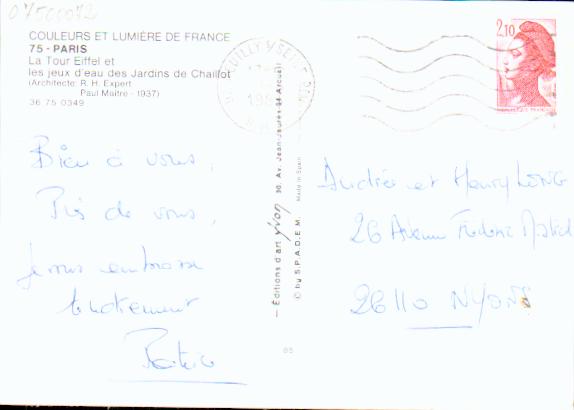 07500072
COULEURS ET LUMIÈRE DE FRANCE
75 - PARIS
La Tour Eiffel et
les jeux d'eau des Jardins de Chaillot
(Architecte: R. H. Expert
Paul Maître - 1937)
36 75 0349
Bien à vous,
Près de vous,
Je vous embrasse
tendrement
— Éditions d'art yvon 30, Av. Jean-Jaurès 94 Arcueil
© by S.P.A.D.E.M. Made in Spain
85
NEUILLY S/ SEINE
2,10
Andrée et Henry LONG
26 Avenue Frédéric Mistral
26110 NYONS